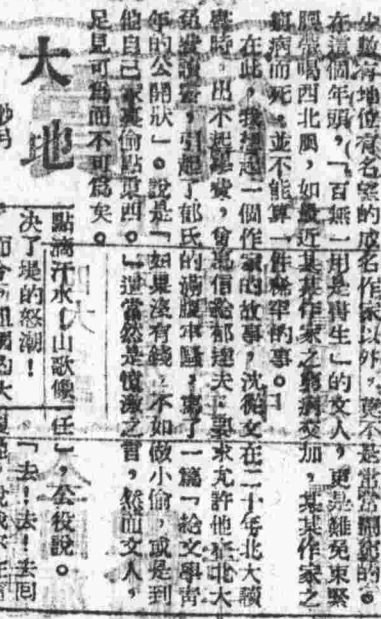 少數有地位有名望的成名作家以外，更不是常常鬧窮的。
在這個年頭，「百無一用是書生」的文人，更是難免束緊
腰帶喝西北風，如最近某某作家之窮病交加，某某作家之
病而死，並不能算一件稀罕的事。
在此，我想起一個作家的故事，沈從文在二十年北大讀
書時，出不起學費，曾寫信給郁達夫，要求允許他在北大
引起了郁氏的滿腹牢騷，寫了一篇「給文學青
年的公開狀」。說是「如果沒有錢，不如做小偷，或是到
他自己家去偷點東西。」這當然是憤激之言，然而文人，
足見可為而不可為矣。
大地
點滴汗水（山歌像
決了堤的怒潮！
任」，公役說。
「去！去！去回